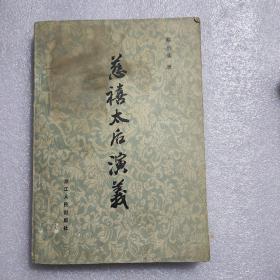 慈禧太后演義
蔡东藩 著
浙江人民出版社